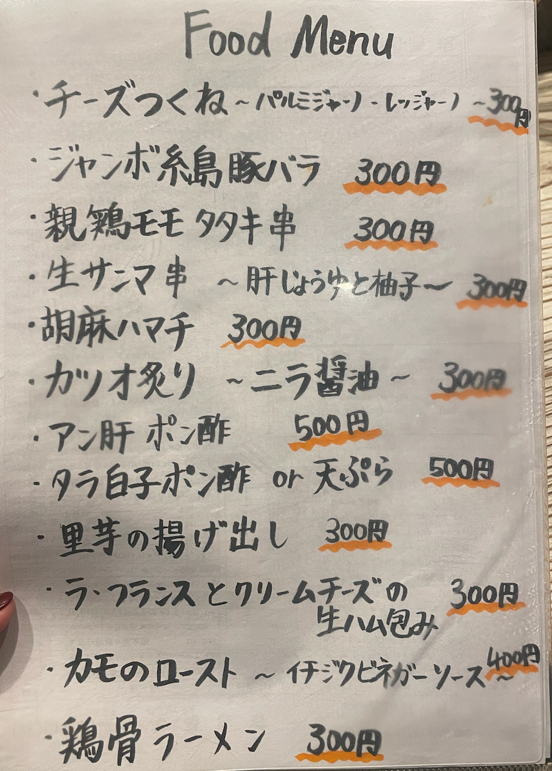 Food Menu
・チーズつくね ~パルミジャーノ・レッジャーノ~ 300円
・ジャンボ糸島豚バラ 300円
・親鶏モモタタキ串 300円
・生サンマ串 ~肝じょうゆと柚子~ 300円
・胡麻ハマチ 300円
・カツオ炙り ~ニラ醤油~ 300円
・アン肝ポン酢 500円
・タラ白子ポン酢 or 天ぷら 500円
・里芋の揚げ出し 300円
・ラ・フランスとクリームチーズの 300円
生ハム包み
・カモのロースト ~イチジクビネガーソース~ 400円
・鶏骨ラーメン 300円